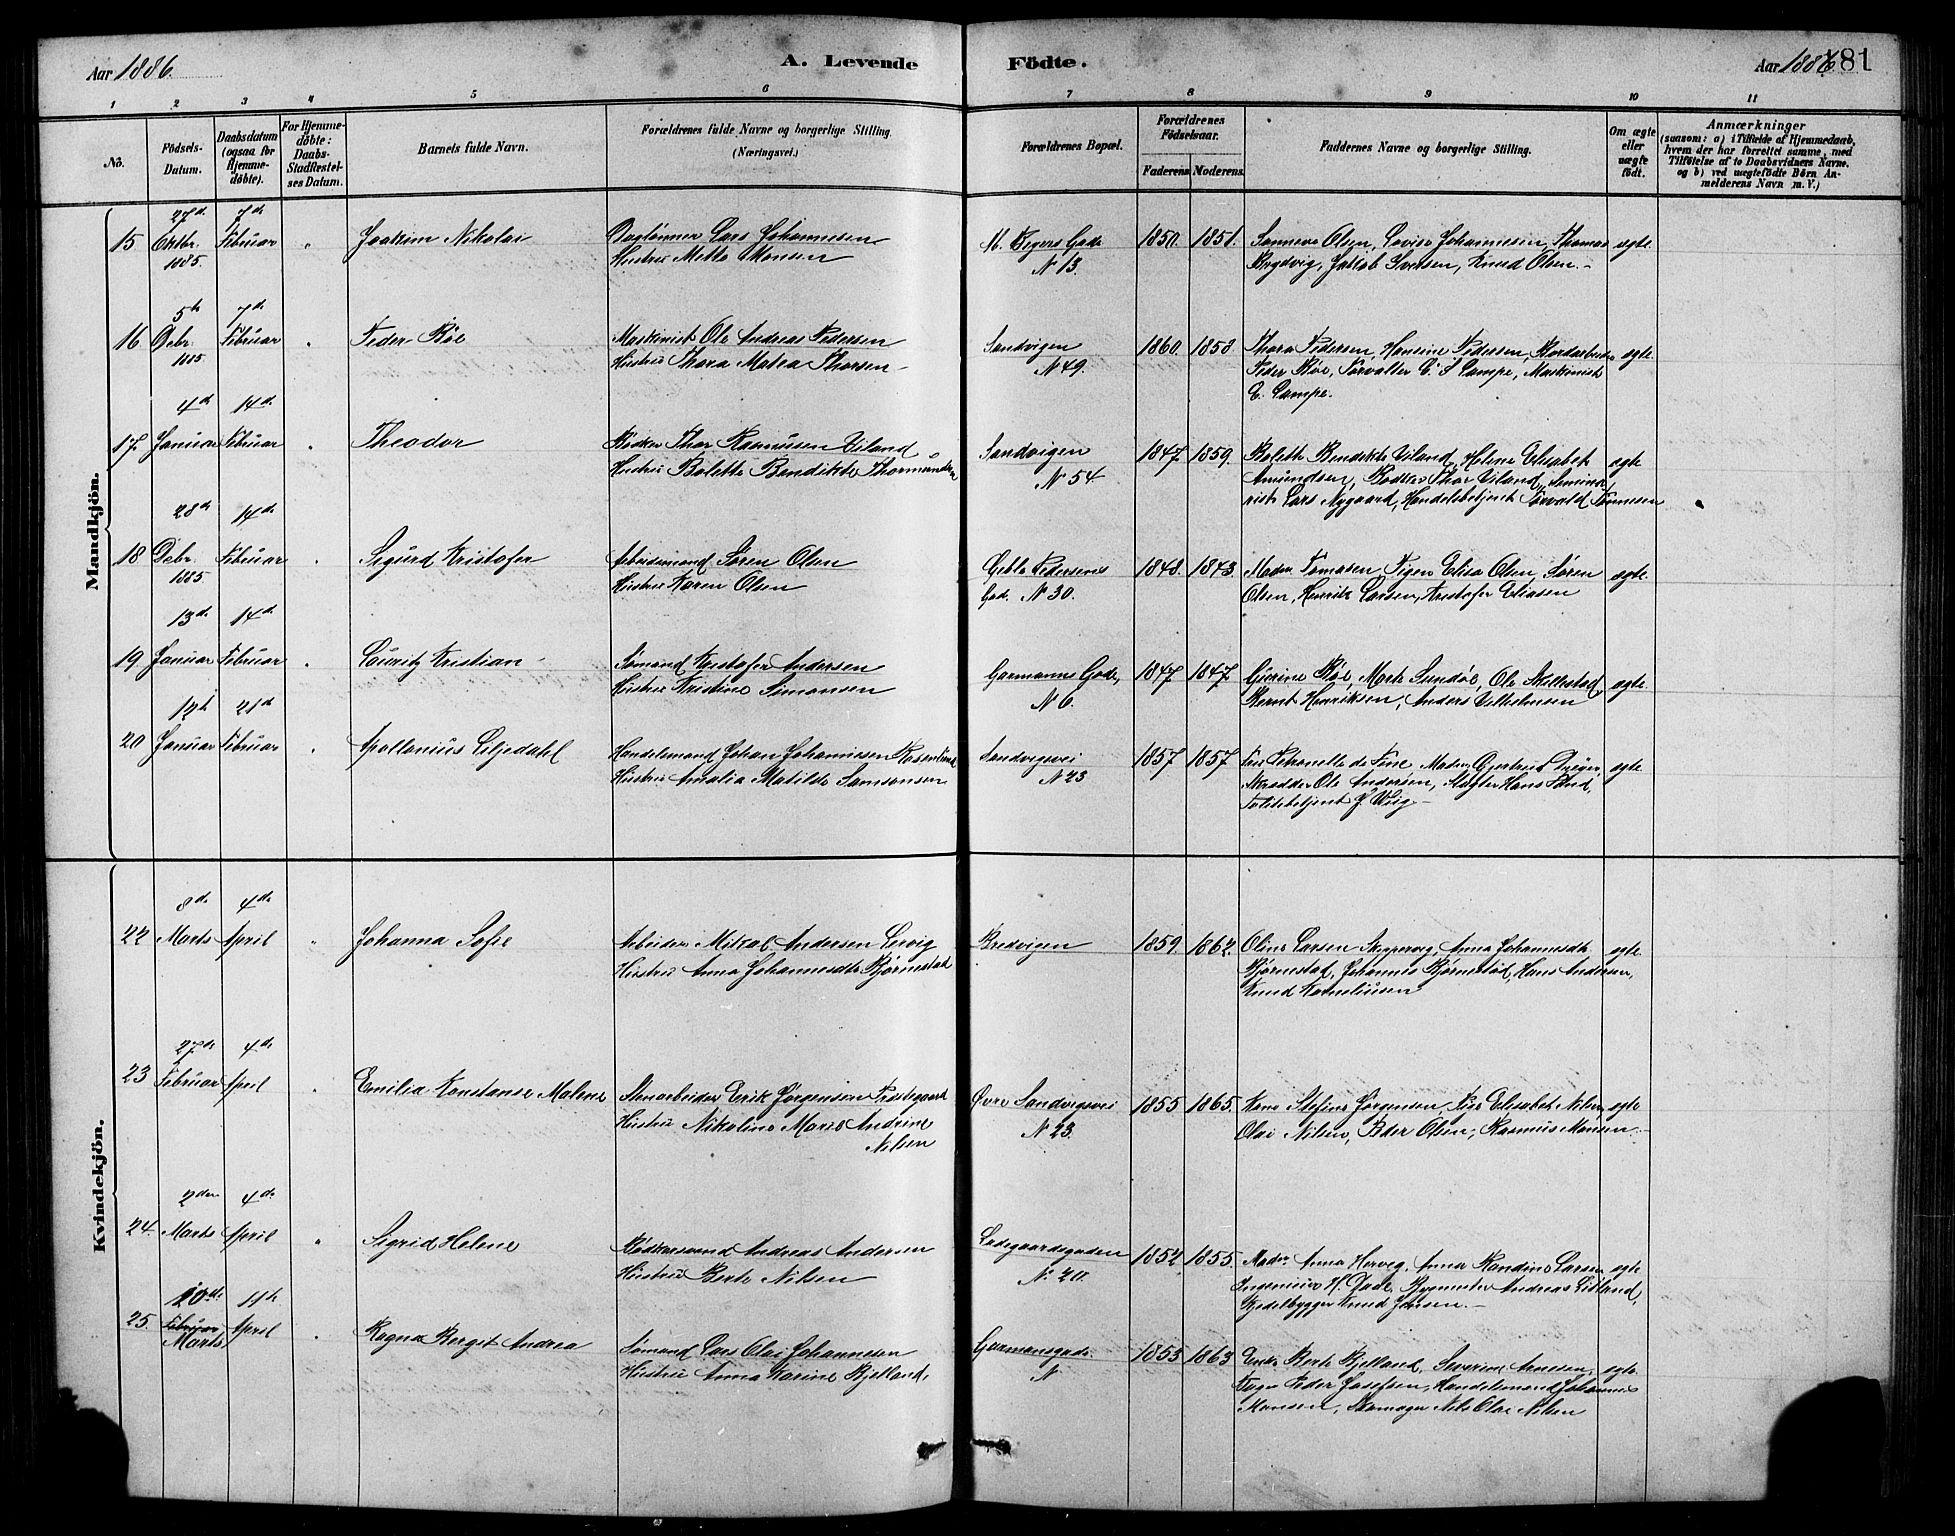 Aar 1886.
A. Levende Födte.
Aar 1886
181
1 2 3 4 5 6 7 8 9 10 11
No.
Födsels-Datum.
Daabsdatum (ogsaa for Hjemme-döbte).
For Hjemme-döbte: Daabs-Stadfæstel-ses Datum.
Barnets fulde Navn.
Forældrenes fulde Navne og borgerlige Stilling. (Næringsvei.)
Forældrenes Bopæl.
Forældrenes Födselsaar.
Faderens Moderens
Faddernes Navne og borgerlige Stilling.
Om ægte eller uægte födt.
Anmærkninger
(saasom: a) i Tilfælde af Hjemmedaab, hvem der har forrettet samme, med Tilföielse af to Daabsvidners Navne. og b) ved uægtefödte Börn An-melderens Navn m. V.)
Mandkjön.
15 27de Oktbr. 1885. 7de Februar " Joakim Nikolai
Daglønner Lars Johannesen
Hustru Mette Monsen
N 13. 1850. 1851.
Sanneva Olsen, Lovise Johannesen, Thomas
Bygdvig, Jakob Svensen, Knud Olsen. ægte
16 5te Debr. 1885. 7de Februar " Peder Röe
Maskinist Ole Andreas Pedersen
Hustru Thora Matea Thorsen
Sandvigen N 49. 1860. 1858.
Thora Pedersen, Hansine Pedersen,
Peder Röe, Forvalter C. S Lampe, Maskinist
E. Lampe. ægte
17. 4de Januar 14de Februar " Theodor
Bödker Thor Rasmusen Eiland
Hustru Bolette Bendikte
Sandvigen N 54 1847 1859.
Bolette Bendikte Eiland, Helene Elisabet
Amundsen, Bödker Thor Eiland, Semina-
rist Lars Nygaard, Handelsbetjent Torvald Tönnesen ægte
18 28de Debr. 1885 14de Februar " Sigurd Kristofer
Arbeidsmand Sören Olsen
Hustru Karen Olsen
Geble Pedersens Gad. N 30. 1848. 1843.
Elisa Olsen, Sören
Olsen, Henrik Larsen, Kristofer Eliasen ægte
19. 13de Januar 14de Februar " Lauritz Kristian
Sömand Kristofer Andersen
Hustru Kristine Simonsen
Garmanns Gade, N 6. 1847 1847
Gurine Röe, Marte Sundöe, Ole Skillestad,
Bernt Henriksen, Anders Vilhelmsen ægte
20 12te Januar 21de Februar " Apollonius Liljedahl
Handelsmand Johan Johannesen Rosenlund
Hustru Amalia Matilde Samsonsen
Sandvigsvei N 23 1857 1857
Petronelle de Fine, Madm Gjertrud
Skrædder Ole Andersen, Slagter Hans Sand,
Politibetjent J. Wiig ægte
Kvindekjön.
22 8de Marts 4de April " Johanna Sofie
Arbeider Mikal Andersen Lervig
Hustru Anna Johannesdtr Bjørnestad
Bredvigen 1859 1862.
Oline Larsen Skippervig, Anna Johannesdt.
Bjørnestad, Johannes Bjørnestad, Hans Andersen,
Knud Korneliusen ægte
23 27de Februar 4de April " Emilia Konstanse Malene
Stenarbeider Erik Jørgensen
Hustru Nikoline Marie Andrine
Nilsen
Övre Sandvigsvei N 23. 1855 1865.
Kone Stefine Jørgensen, Elisabet Nilsen,
Olai Nilsen, Peder Olsen, Rasmus Monsen ægte
24. 2den Marts 4de April " Sigrid Helene
Bödkersvend Andreas Andersen
Hustru Berte Nilsen
Ladegaardsgaden N. 20. 1852 1855.
Madm Anna Herveg, Anna Randine Larsen,
Ingeniør H. Dahl, Bygmester Andreas Lidland,
Kjedelbygger Knud Jansen. ægte
25. 10de Marts 11te April " Ragna Bergit Andrea
Sømand Lars Olai Johannesen
Hustru Anna Karine Bjelland,
Garmansgade N 1853 1863
Enke Berte Bjelland, Severine Arnesen,
Peder Josefsen, Handelsmand Johannes
Monsen, Skomager Nils Olai Nilsen ægte